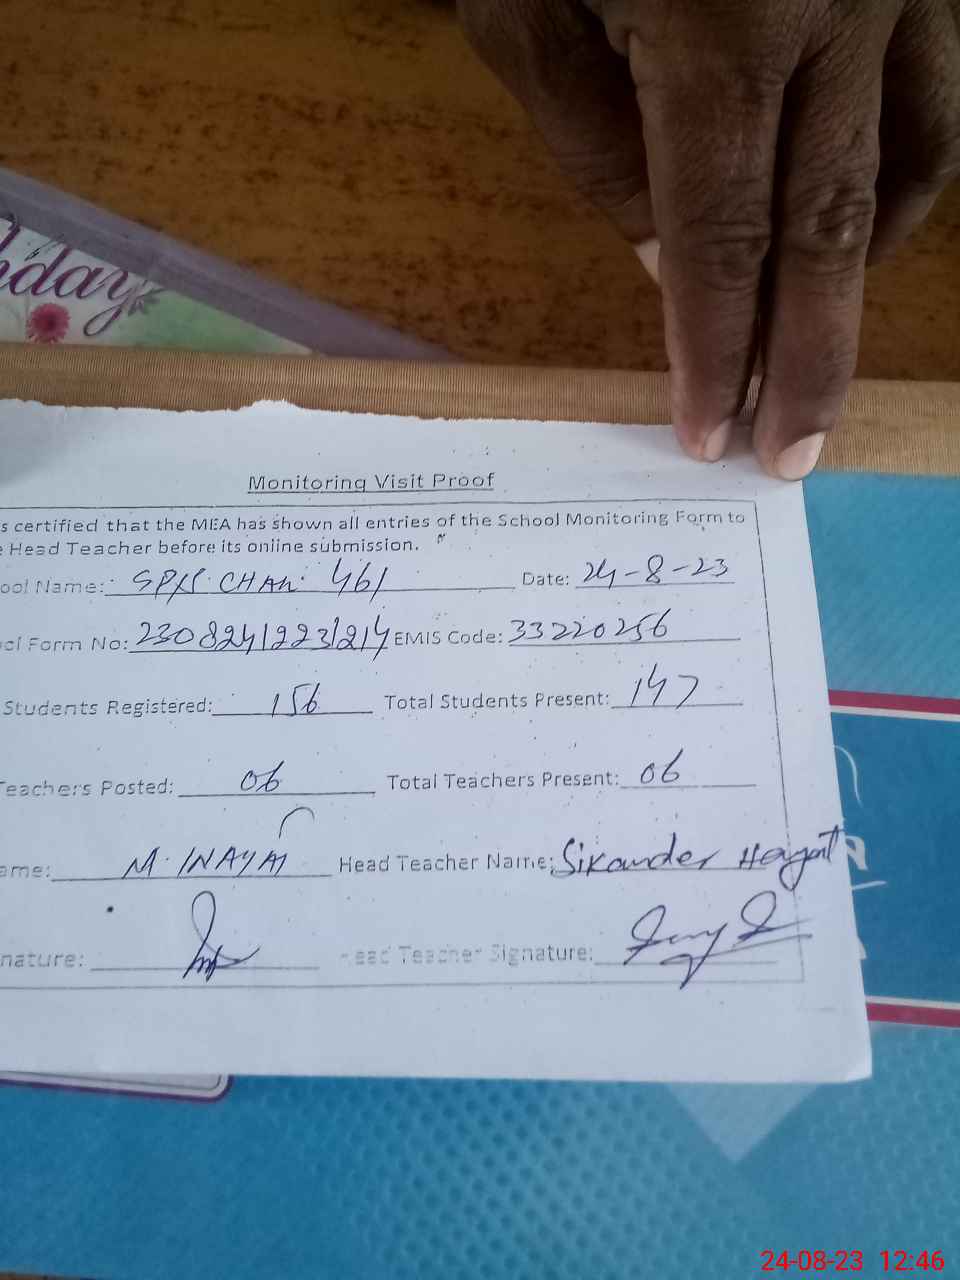 hday
Monitoring Visit Proof
s certified that the MEA has shown all entries of the School Monitoring Form to
e Head Teacher before its online submission.
ool Name: CHAK 461 Date: 24-8-23
ol Form No: EMIS Code: 33220256
Students Registered: 156 Total Students Present: 147
Teachers Posted: 06 Total Teachers Present: 06
ame: M. INAYAT Head Teacher Name: Sikander Hayat
nature: Head Teacher Signature:
24-08-23 12:46